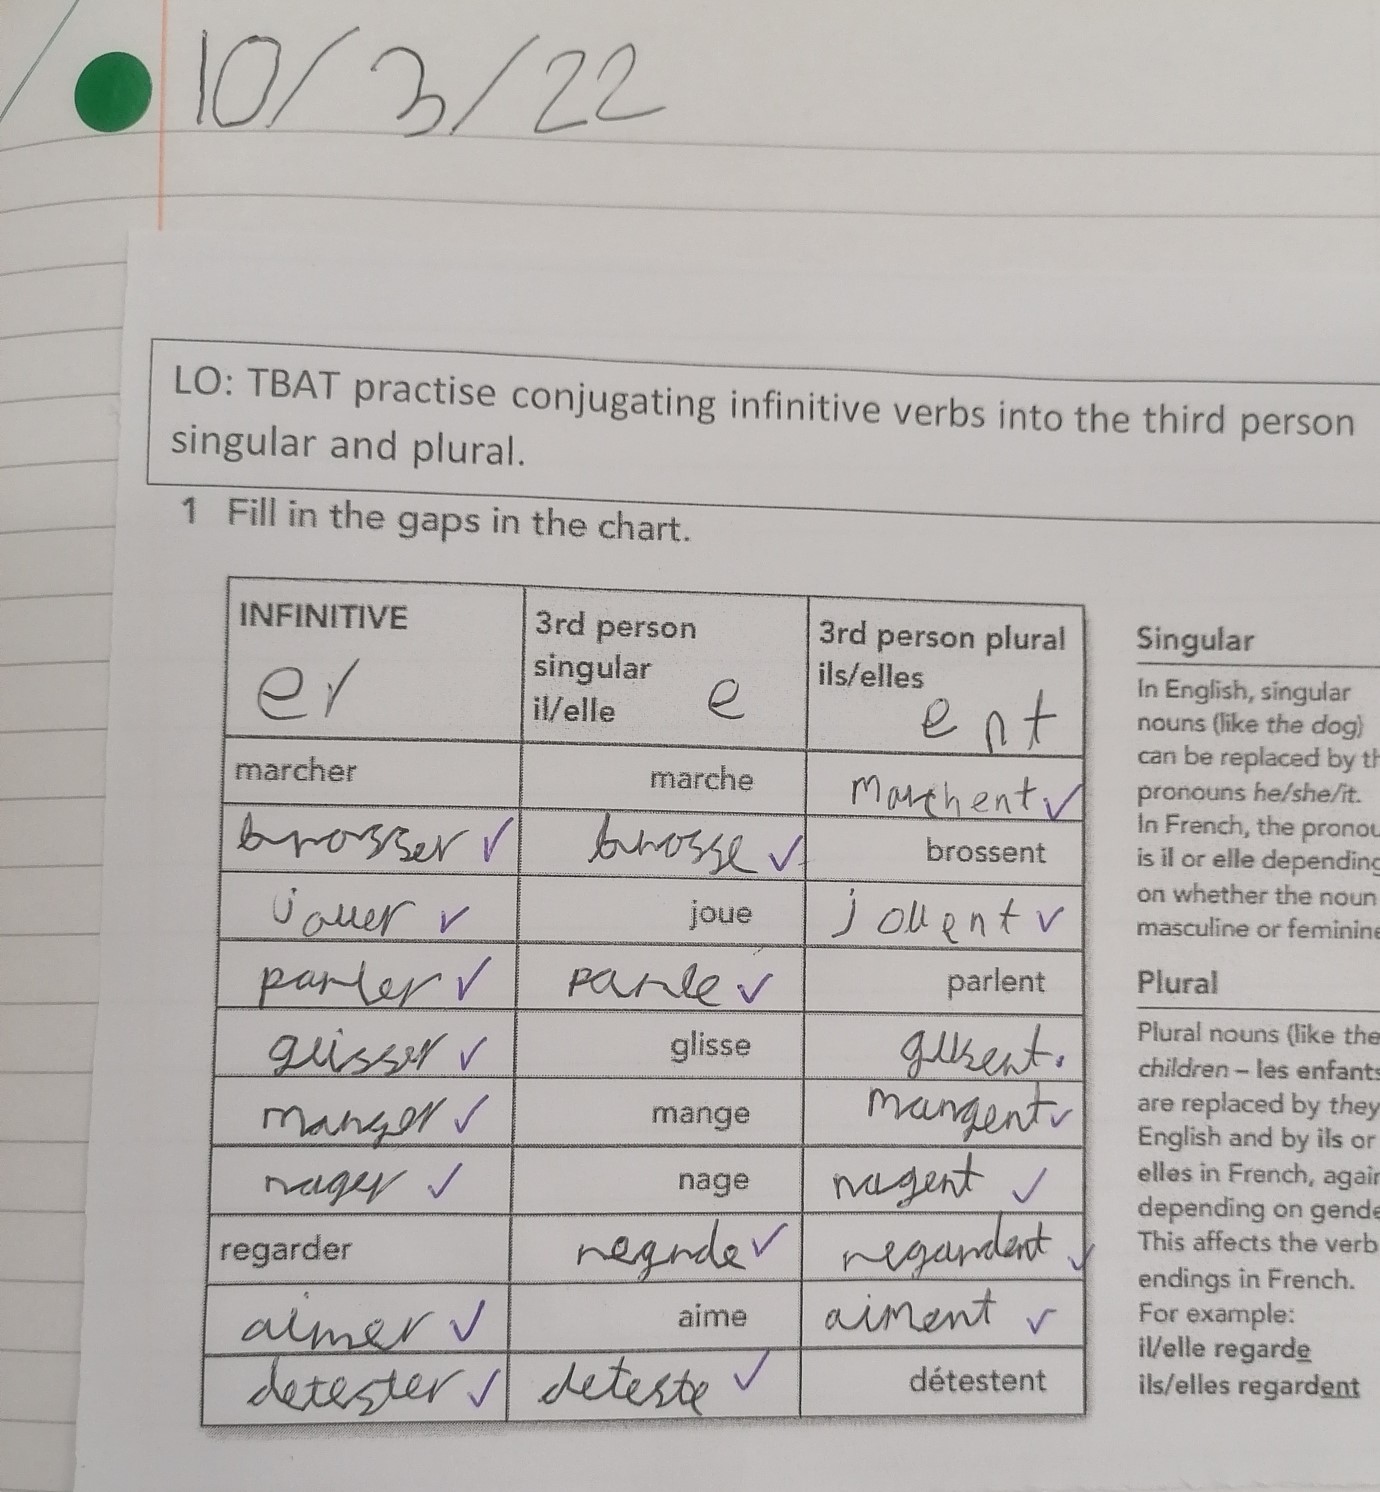 10/3/22
LO: TBAT practise conjugating infinitive verbs into the third person
singular and plural.
1 Fill in the gaps in the chart.
INFINITIVE
er
3rd person
singular
il/elle e
3rd person plural
ils/elles
ent
marcher marche marchent
brosser brosse brossent
jouer joue jouent
parler parle parlent
glisser glisse glisent.
manger mange mangent
nager nage nagent
regarder regrde regardent
aimer aime aiment
detester deteste détestent
Singular
In English, singular
nouns (like the dog)
can be replaced by th
pronouns he/she/it.
In French, the pronou
is il or elle depending
on whether the noun
masculine or feminine
Plural
Plural nouns (like the
children – les enfants
are replaced by they
English and by ils or
elles in French, again
depending on gende
This affects the verb
endings in French.
For example:
il/elle regarde
ils/elles regardent